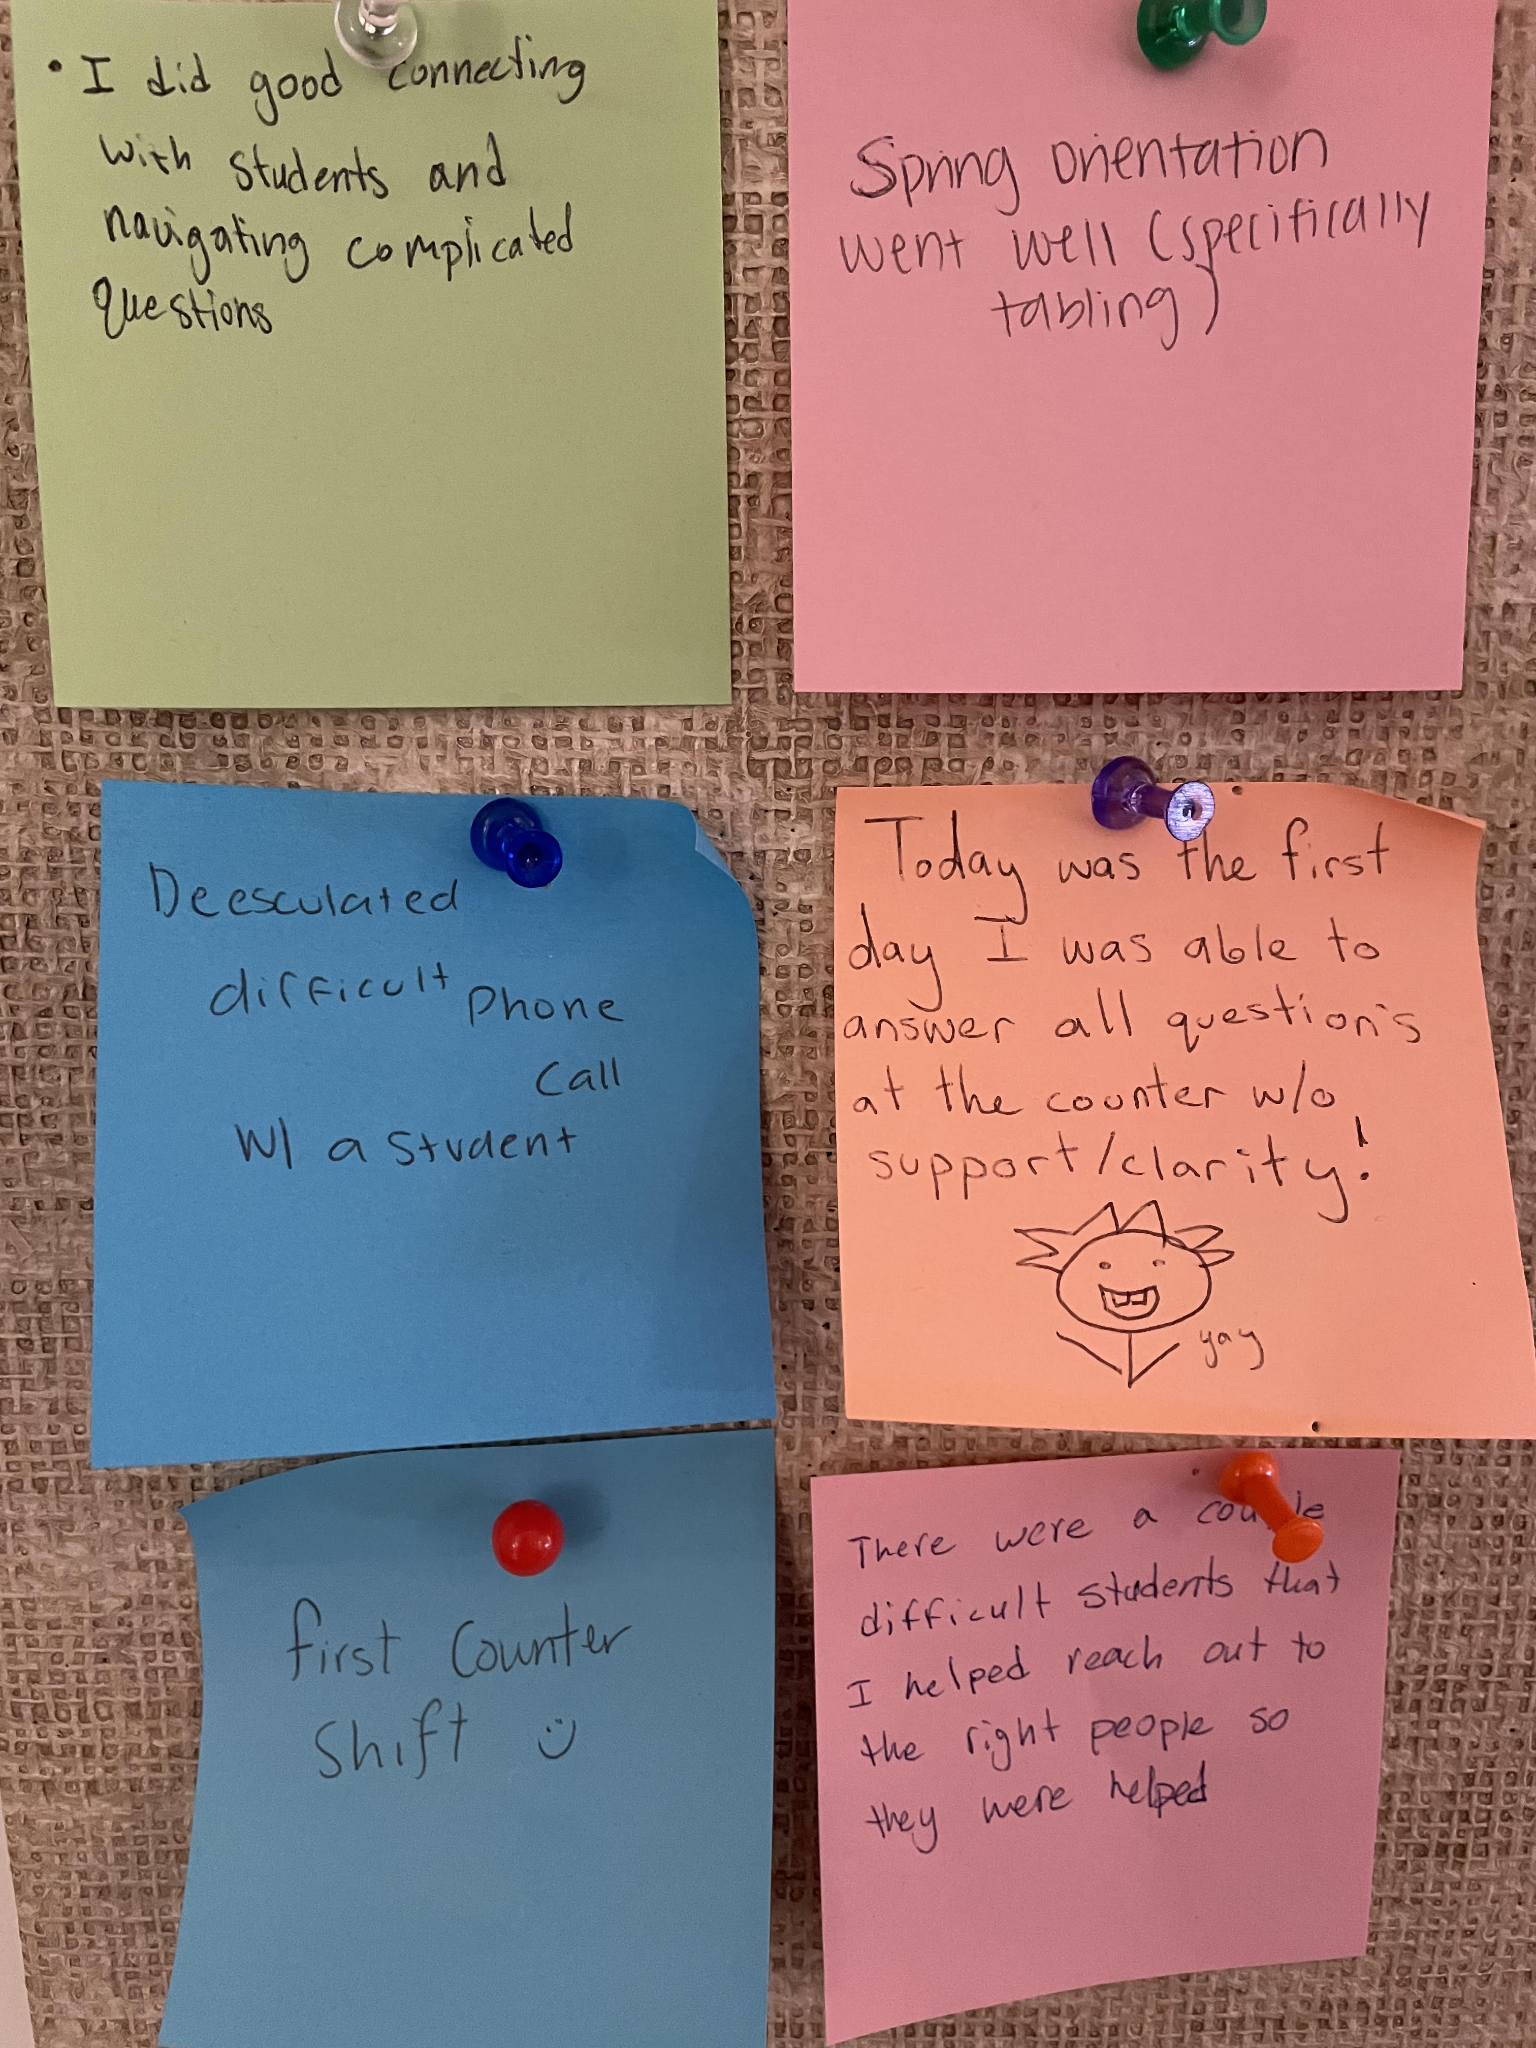 • I did good connecting
with students and
navigating complicated
questions
Spring orientation
went well (specifically
tabling)
Deesculated
difficult phone
call
w/ a student
Today was the first
day I was able to
answer all question's
at the counter w/o
support/clarity!
yay
first counter
shift :)
There were a couple
difficult students that
I helped reach out to
the right people so
they were helped